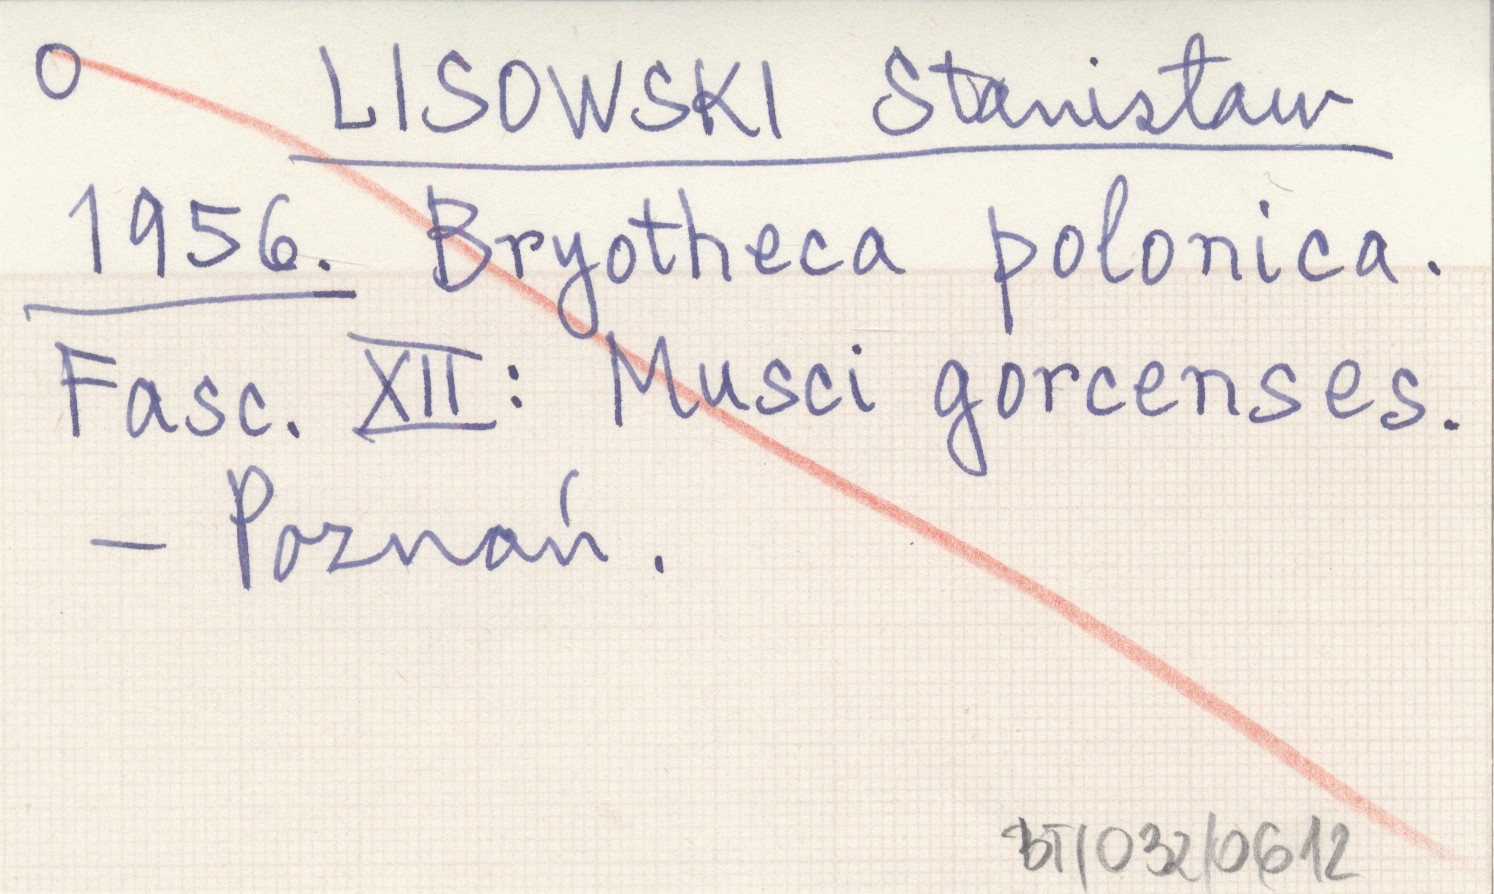 O LISOWSKI Stanisław
1956. Bryotheca polonica.
Fasc. XII: Musci gorcenses.
— Poznań.
BT/032/0612